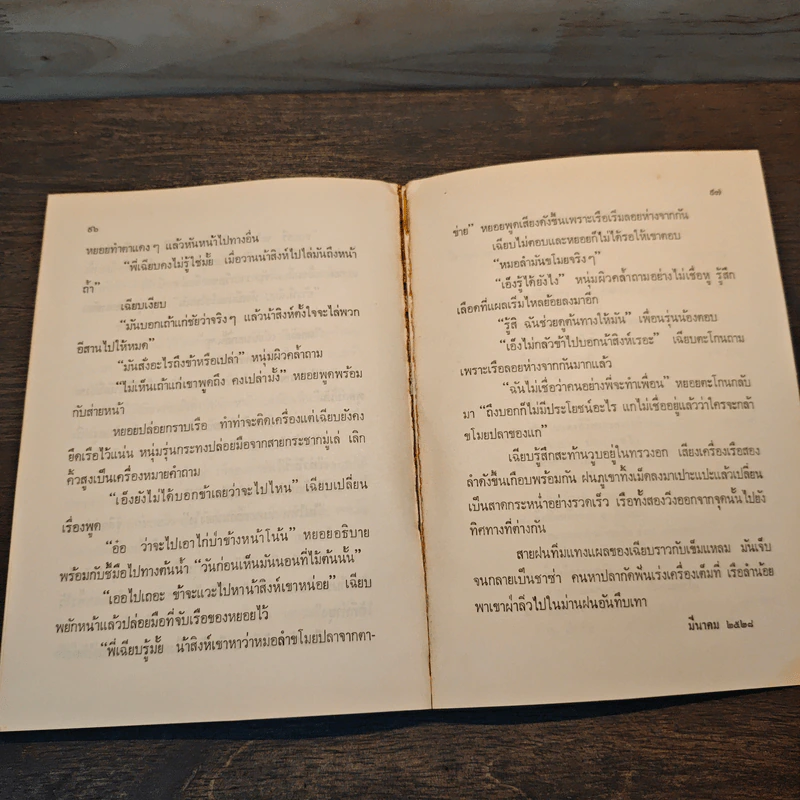 ๕๖
หยอยทำตาแดงๆ แล้วหันหน้าไปทางอื่น
“พี่เฉียบคงไม่รู้ใช่มั้ย เมื่อวานน้าสิงห์ไปไล่มันถึงหน้า
ถ้ำ”
เฉียบเงียบ
“มันบอกเถ้าแก่ชัยว่าจริงๆ แล้วน้าสิงห์ตั้งใจจะไล่พวก
อีสานไปให้หมด”
“มันสั่งอะไรถึงข้าหรือเปล่า” หนุ่มผิวคล้ำถาม
“ไม่เห็นเถ้าแก่เขาพูดถึง คงเปล่ามั้ง” หยอยพูดพร้อม
กับส่ายหน้า
หยอยปล่อยกราบเรือ ทำท่าจะติดเครื่องแต่เฉียบยังคง
ยึดเรือไว้แน่น หนุ่มรุ่นกระทงปล่อยมือจากสายกระชากมู่เล่ เลิก
คิ้วสูงเป็นเครื่องหมายคำถาม
“เอ็งยังไม่ได้บอกข้าเลยว่าจะไปไหน” เฉียบเปลี่ยน
เรื่องพูด
“อ๋อ ว่าจะไปเอาไก่ป่าข้างหน้าโน้น” หยอยอธิบาย
พร้อมกับชี้มือไปทางต้นน้ำ “วันก่อนเห็นมันนอนที่ไม้ต้นนั้น”
“เออไปเถอะ ข้าจะแวะไปหาน้าสิงห์เขาหน่อย” เฉียบ
พยักหน้าแล้วปล่อยมือที่จับเรือของหยอยไว้
“พี่เฉียบรู้มั้ย น้าสิงห์เขาหาว่าหม่อลำขโมยปลาจากตา-
๕๗
ข่าย” หยอยพูดเสียงดังขึ้นเพราะเรือเริ่มลอยห่างจากกัน
เฉียบไม่ตอบและหยอยก็ไม่ได้รอให้เขาตอบ
“หมอลำมันขโมยจริงๆ”
“เอ็งรู้ได้ยังไง” หนุ่มผิวคล้ำถามอย่างไม่เชื่อหู รู้สึก
เลือดที่แผลเริ่มไหลย้อยลงมาอีก
“รู้สิ ฉันช่วยดูต้นทางให้มัน” เพื่อนรุ่นน้องตอบ
“เอ็งไม่กลัวข้าไปบอกน้าสิงห์เรอะ” เฉียบตะโกนถาม
เพราะเรือลอยห่างจากกันมากแล้ว
“ฉันไม่เชื่อว่าคนอย่างพี่จะทำเพื่อน” หยอยตะโกนกลับ
มา “ถึงบอกก็ไม่มีประโยชน์อะไร แกไม่เชื่ออยู่แล้วว่าใครจะกล้า
ขโมยปลาของแก”
เฉียบรู้สึกสะท้านวูบอยู่ในทรวงอก เสียงเครื่องเรือสอง
ลำดังขึ้นเกือบพร้อมกัน ฝนภูเขาทิ้งเม็ดลงมาเปาะแปะแล้วเปลี่ยน
เป็นสาดกระหน่ำอย่างรวดเร็ว เรือทั้งสองวิ่งออกจากจุดนั้นไปยัง
ทิศทางที่ต่างกัน
สายฝนทิ่มแทงแผลของเฉียบราวกับเข็มแหลม มันเจ็บ
จนกลายเป็นชาซ่า คนหาปลากัดฟันเร่งเครื่องเต็มที่ เรือลำน้อย
พาเขาฝ่าลิ่วไปในม่านฝนอันทึบเทา
มีนาคม ๒๕๒๘